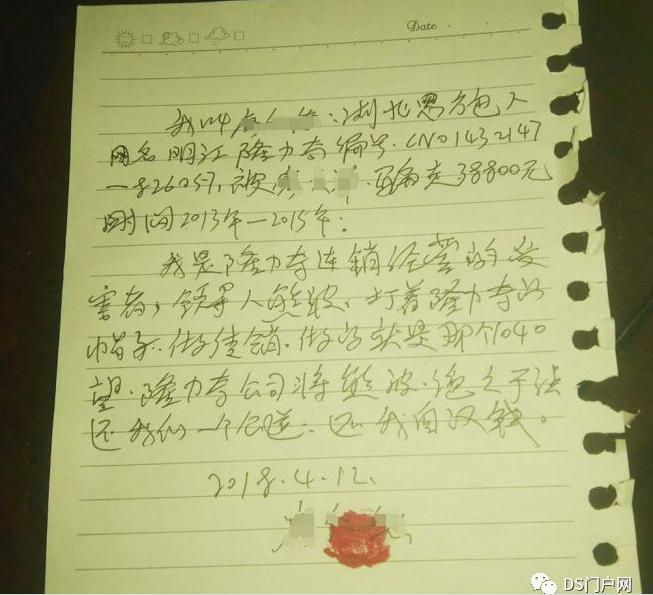 Date
我叫 湖北恩施人
网名明江隆力奇编号.CN01432147
-826057,被 骗走38800元
时间2013年-2015年.
我是隆力奇连锁经营的受
害者,领导人熊波.打着隆力奇的
帽子.做传销.做的就是那个1040
望.隆力奇公司将熊波.绳之于法
还我们一个公道.还我血汗钱。
2018.4.12.
DS门户网